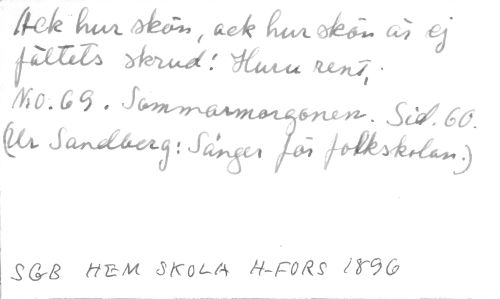 Ack hur skön, ack hur skön är ej
fältets skrud! Huru rent,
No. 69. Sommarmorgonen. Sid. 60.
(Ur Sandberg: Sånger för folkskolan.)
SGB HEM SKOLA H-FORS 1896